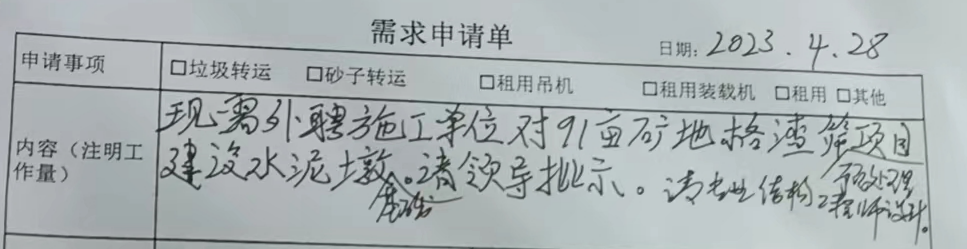 需求申请单
日期: 2023.4.28
申请事项 □垃圾转运 □砂子转运 □租用吊机 □租用装载机 □租用 □其他
内容（注明工作量）
现需外聘施工单位对91亩矿地格渣筛项目
建设水泥墩。请领导批示。请专业结构工程师设计。
基础
预处理